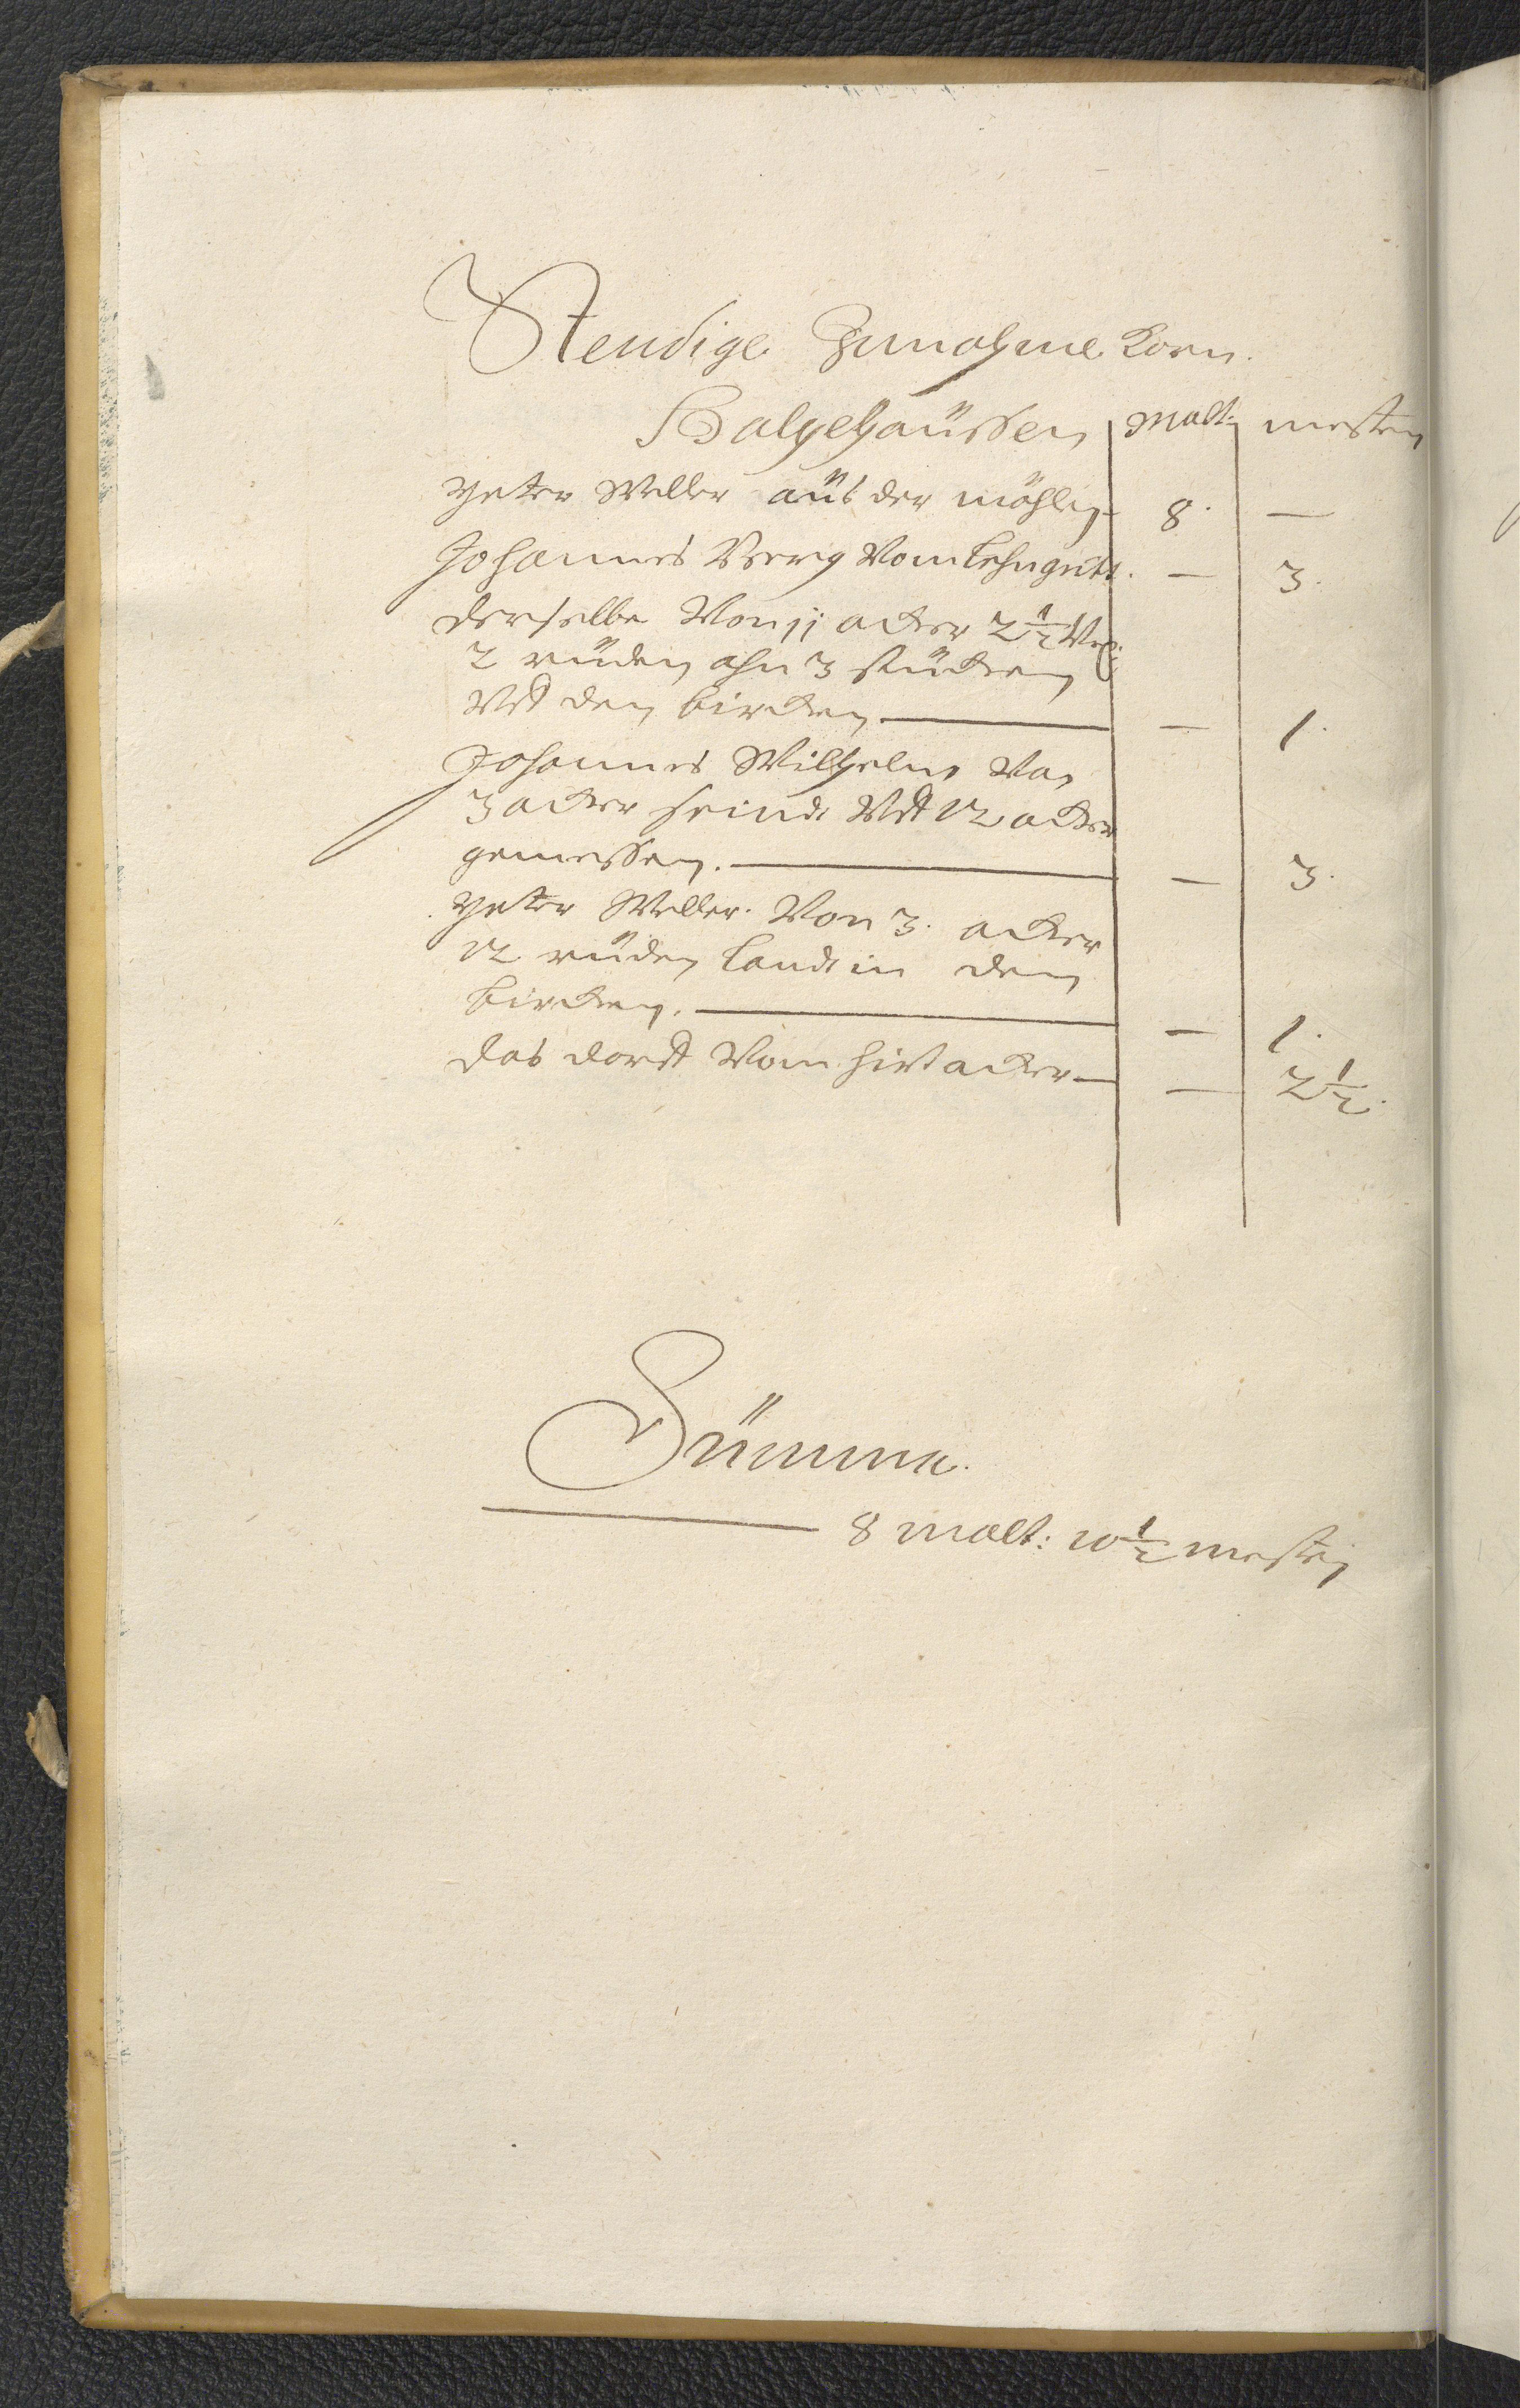 Stendige Einnahme Korn.
Balghaüssen Malt: mesten
Peter Weller aüs der möhlen 8. —
Johannes Berg Vom Lehngütt. — 3.
derselbe Von jj acker 2½
2 rüden ahn 3 stücken
Vff den bircken — — 1.
Johannes Wilhelm Von
3 acker seind Vff 12 acker
gemessen. — — 3.
Peter Weller. Von 3. acker
12 rüden Landt in den
bircken. — — 1.
das dorff Vom hirtacker — — 2½.
Sümma.
— 8 malt: 10½ mesten